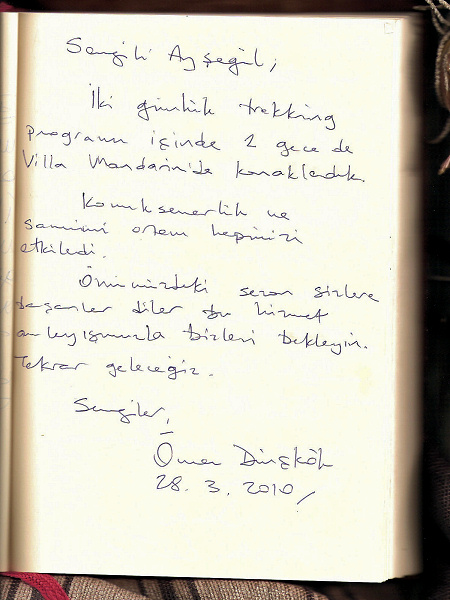 Sevgili Ayşegül,
İki günlük trekking
programı içinde 2 gece de
Villa Mandarin'de konakladık.
Konukseverlik ve
samimi ortam hepimizi
etkiledi.
Önümüzdeki sezon sizlere
başarılar diler bu hizmet
anlayışınızla bizleri bekleyin.
Tekrar geleceğiz.
Sevgiler,
Ömer Dinçkök
28.3.2010